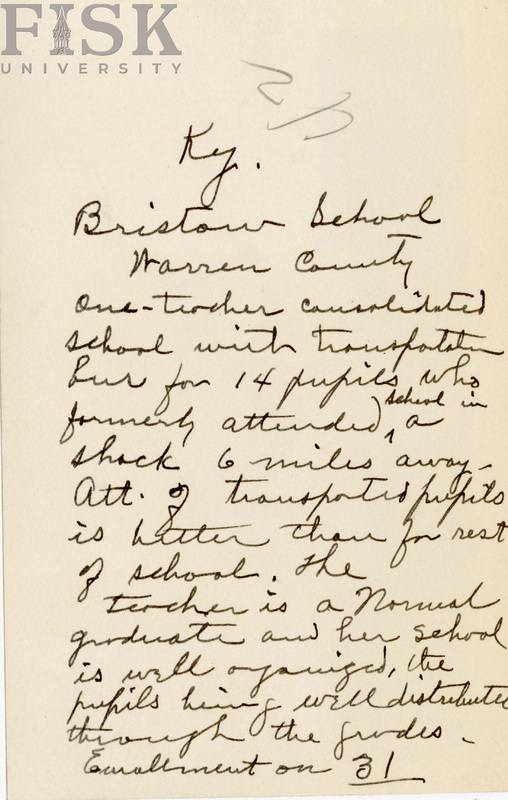 FISK
UNIVERSITY
Ky.
Bristow School
Warren County
One-teacher consolidated
school with transportation
bus for 14 pupils who
formerly attended school in a
shack 6 miles away-
Att. of transported pupils
is better than for rest
of school. The
teacher is a Normal
graduate and her school
is well organized, the
pupils being well distributed
through the grades.
Enrollment on 31